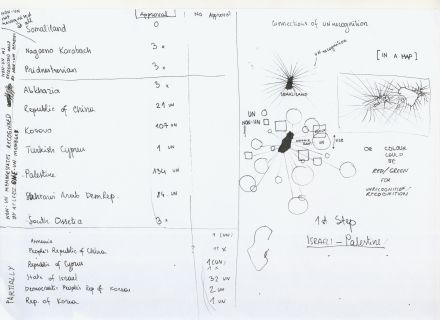 NON-UN
NOT
RECOGNIZED
Approval
No Approval
Somaliland 0
Nagorno Karabach 3 x
Pridnestrovian 3 x
Abkhazia 3 x
Republic of China 21 UN
Kosovo 107 UN
Turkish Cyprus 1 UN
Palestine 134 UN
Sahrawi Arab Dem.Rep. 84 UN
South Ossetia 3 x
NON-UN MEMBERSTATES RECOGNIZED
BY AT LEAST ONE UN MEMBER
PARTIALLY
Armenia 1 (UN)
People's Republic of China
Republic of Cyprus 1 (UN)
1 x
State of Israel 32 UN
Democratic People's Rep of Korea 2 UN
Rep. of Korea 1 UN
Connections of UN recognition
UN recognition
SOMALILAND
[IN A MAP]
UN
NON-UN
UN
OR COLOUR
COULD
BE
RED/GREEN
FOR
UNRECOGNITION/
RECOGNITION
1st Step
ISRAEL - Palestine